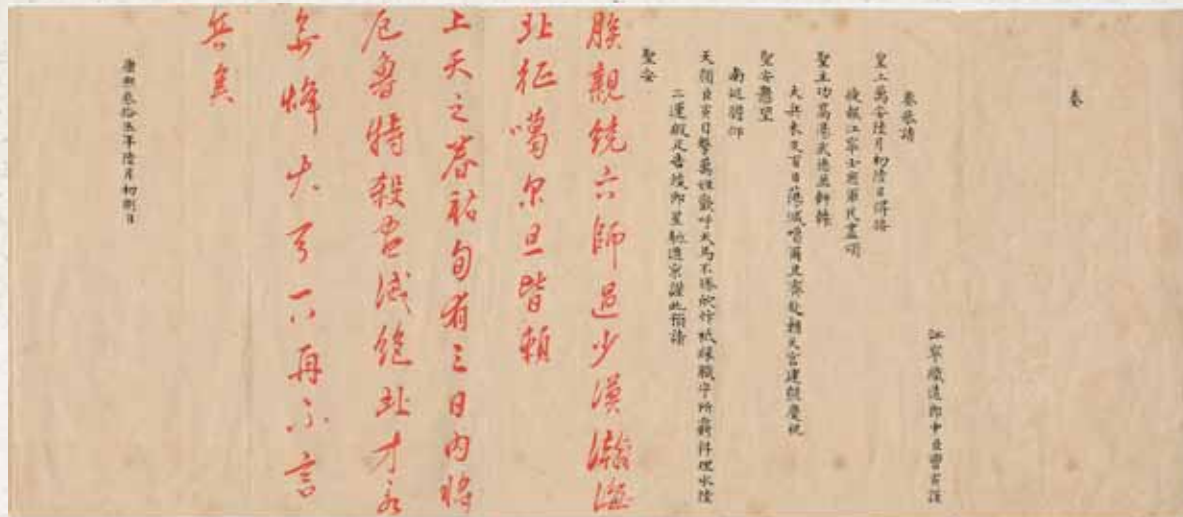 奏
江寧織造郎中臣曹寅謹
奏恭請
皇上萬安陸月初陸日得接
捷報江寧士庶軍民盡頌
聖主功高湯武德並軒轅
大兵未及百日蕩滅噶爾旦齊赴朝天宮建醮慶祝
聖安懸望
南巡得仰
天顏臣寅目擊萬姓歡呼犬馬不勝欣忭祗緣職守所羈料理水陸
二運緞疋告竣即星馳進京謹此預請
聖安
朕親統六師過少漠瀚海
北征噶尔旦皆賴
上天之眷祐旬有三日內將
厄魯特殺盡滅絕北方永
無烽火了一以再不言
兵矣
康熙叁拾伍年陸月初捌日